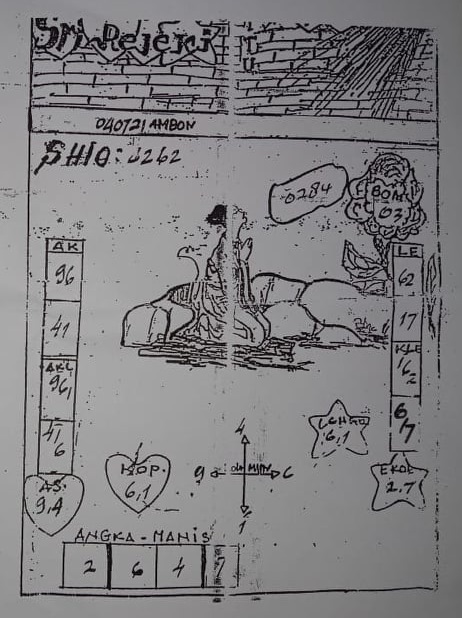 Sri Rejeki
ITU
040721 AMBON
SHIO: 6262
0284
BOM
03
AK
96
41
AKL
961
41
6
LE
62
17
KLE
16
2
6
7
AS.
9.4
KOP.
6,1
4
9
MTN
6
1
6,1
EKOR
2.7
ANGKA - MANIS
2 6 4 7